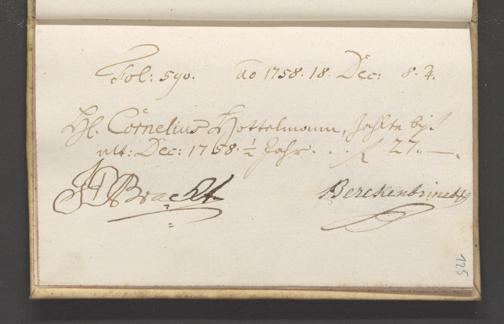 Fol: 590. ao 1758. 18. Dec: 8. 4.
Hl. Cornelius Hottelmann, zahlte biß
ult: Dec: 1758. ½ Jahr . . . 27. —
Bracht. Berckenbrinck
125